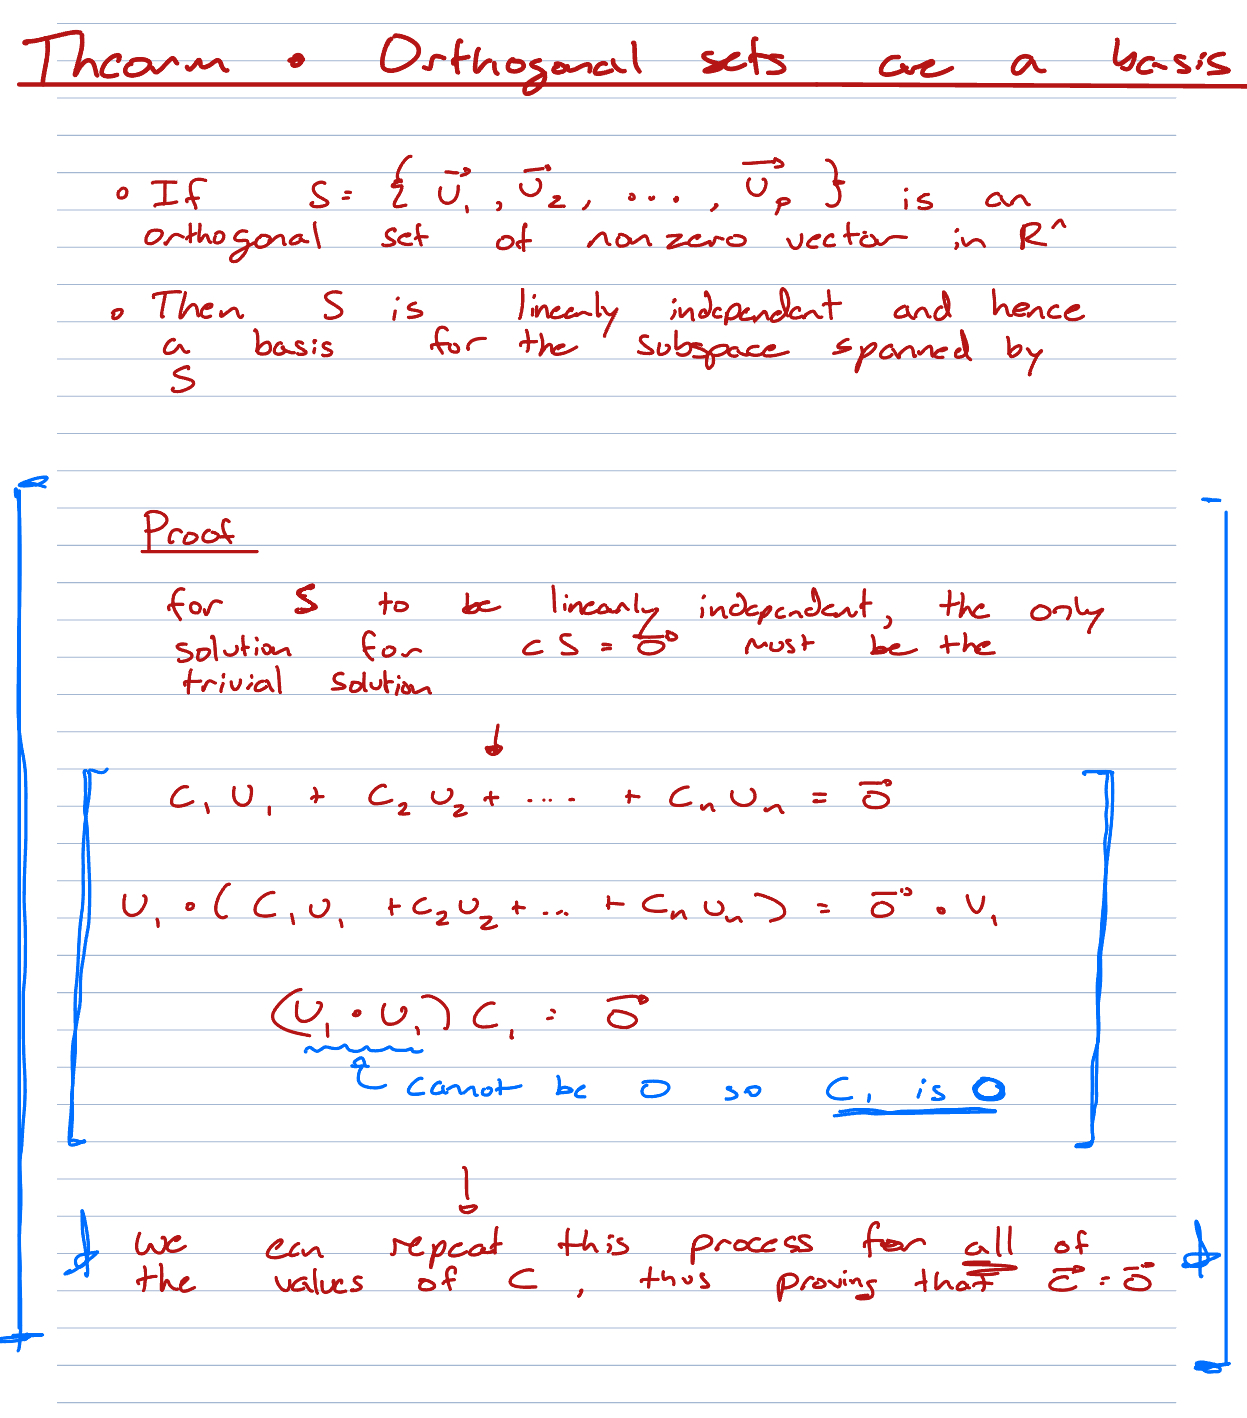 Theorm • Orthogonal sets are a basis
◦ If S = { u⃗₁ , u⃗₂ , ... , u⃗ₚ } is an
orthogonal set of nonzero vector in Rⁿ
◦ Then S is linearly independent and hence
a basis for the subspace spanned by
S
Proof
for S to be linearly independent, the only
solution for cS = 0⃗ must be the
trivial solution
↓
C₁ U₁ + C₂ U₂ + .... + Cₙ Uₙ = 0⃗
U₁ • ( C₁ U₁ + C₂ U₂ + ... + Cₙ Uₙ ) = 0⃗ • U₁
(U₁ • U₁) C₁ = 0⃗
cannot be 0 so C₁ is 0
↓
we can repeat this process for all of
the values of C , thus proving that c⃗ = 0⃗